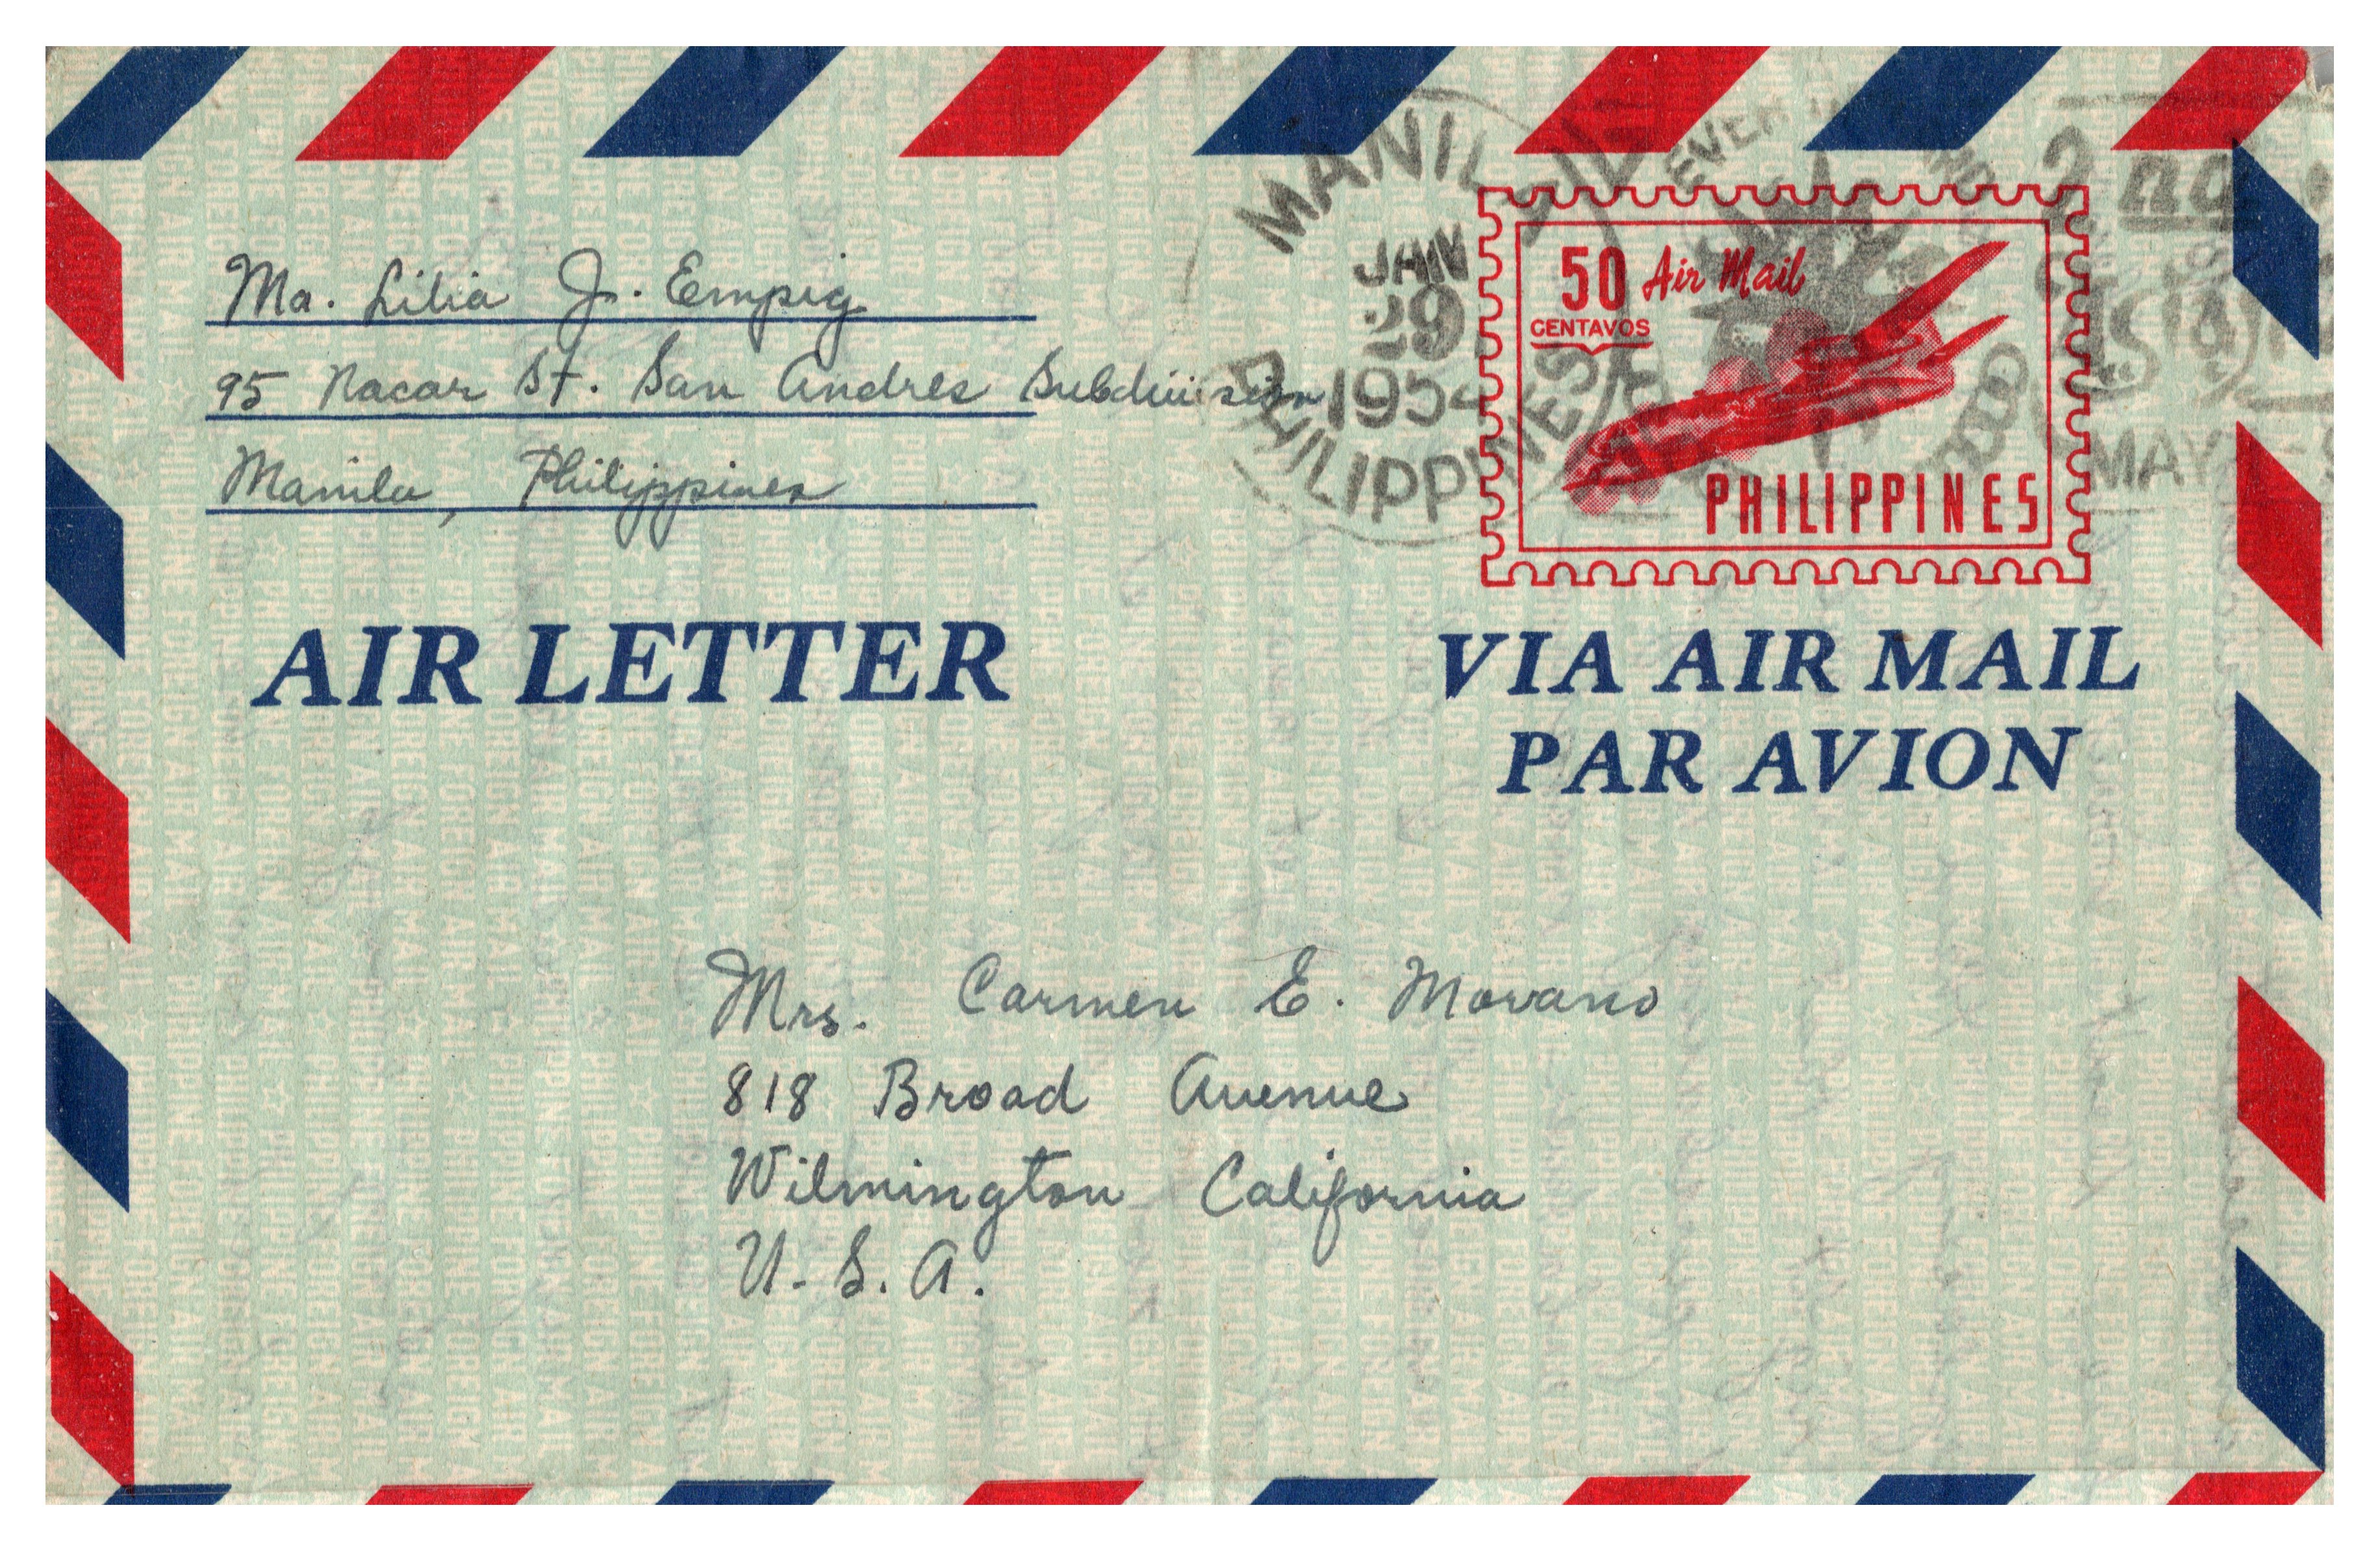 Ma. Lilia J. Empig
95 Nacar St. San Andres Subdivision
Manila, Philippines
MANILA
JAN
29
1954
PHILIPPINES
50 Air Mail
CENTAVOS
PHILIPPINES
2nd
MAY
AIR LETTER
VIA AIR MAIL
PAR AVION
Mrs. Carmen E. Morano
818 Broad Avenue
Wilmington California
U. S. A.